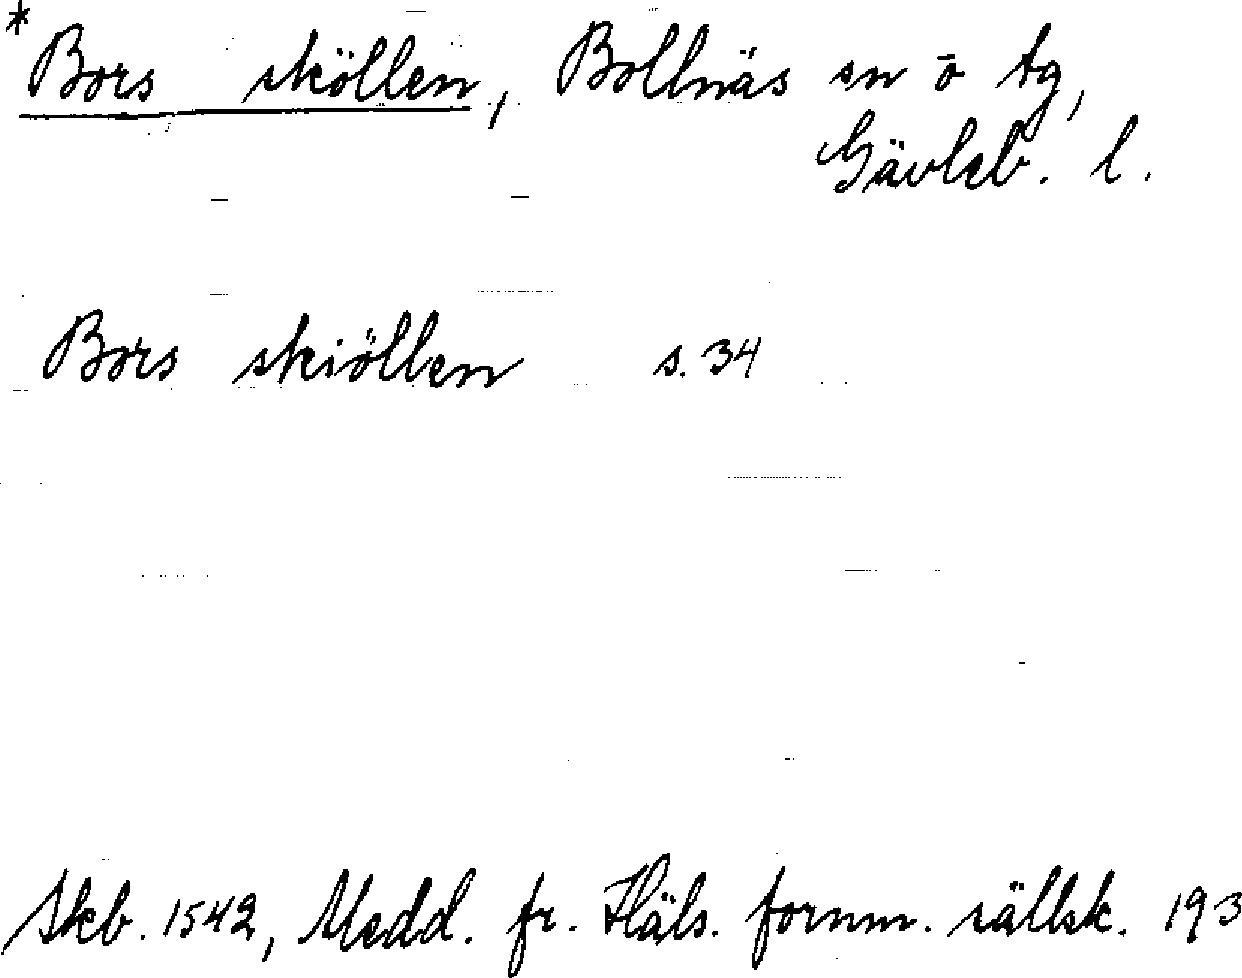 *Bors sköllen, Bollnäs sn o tg,
Gävleb. l.
Bors skiöllen s. 34
Skb. 1542, Medd. fr. Häls. fornm. sällsk. 193